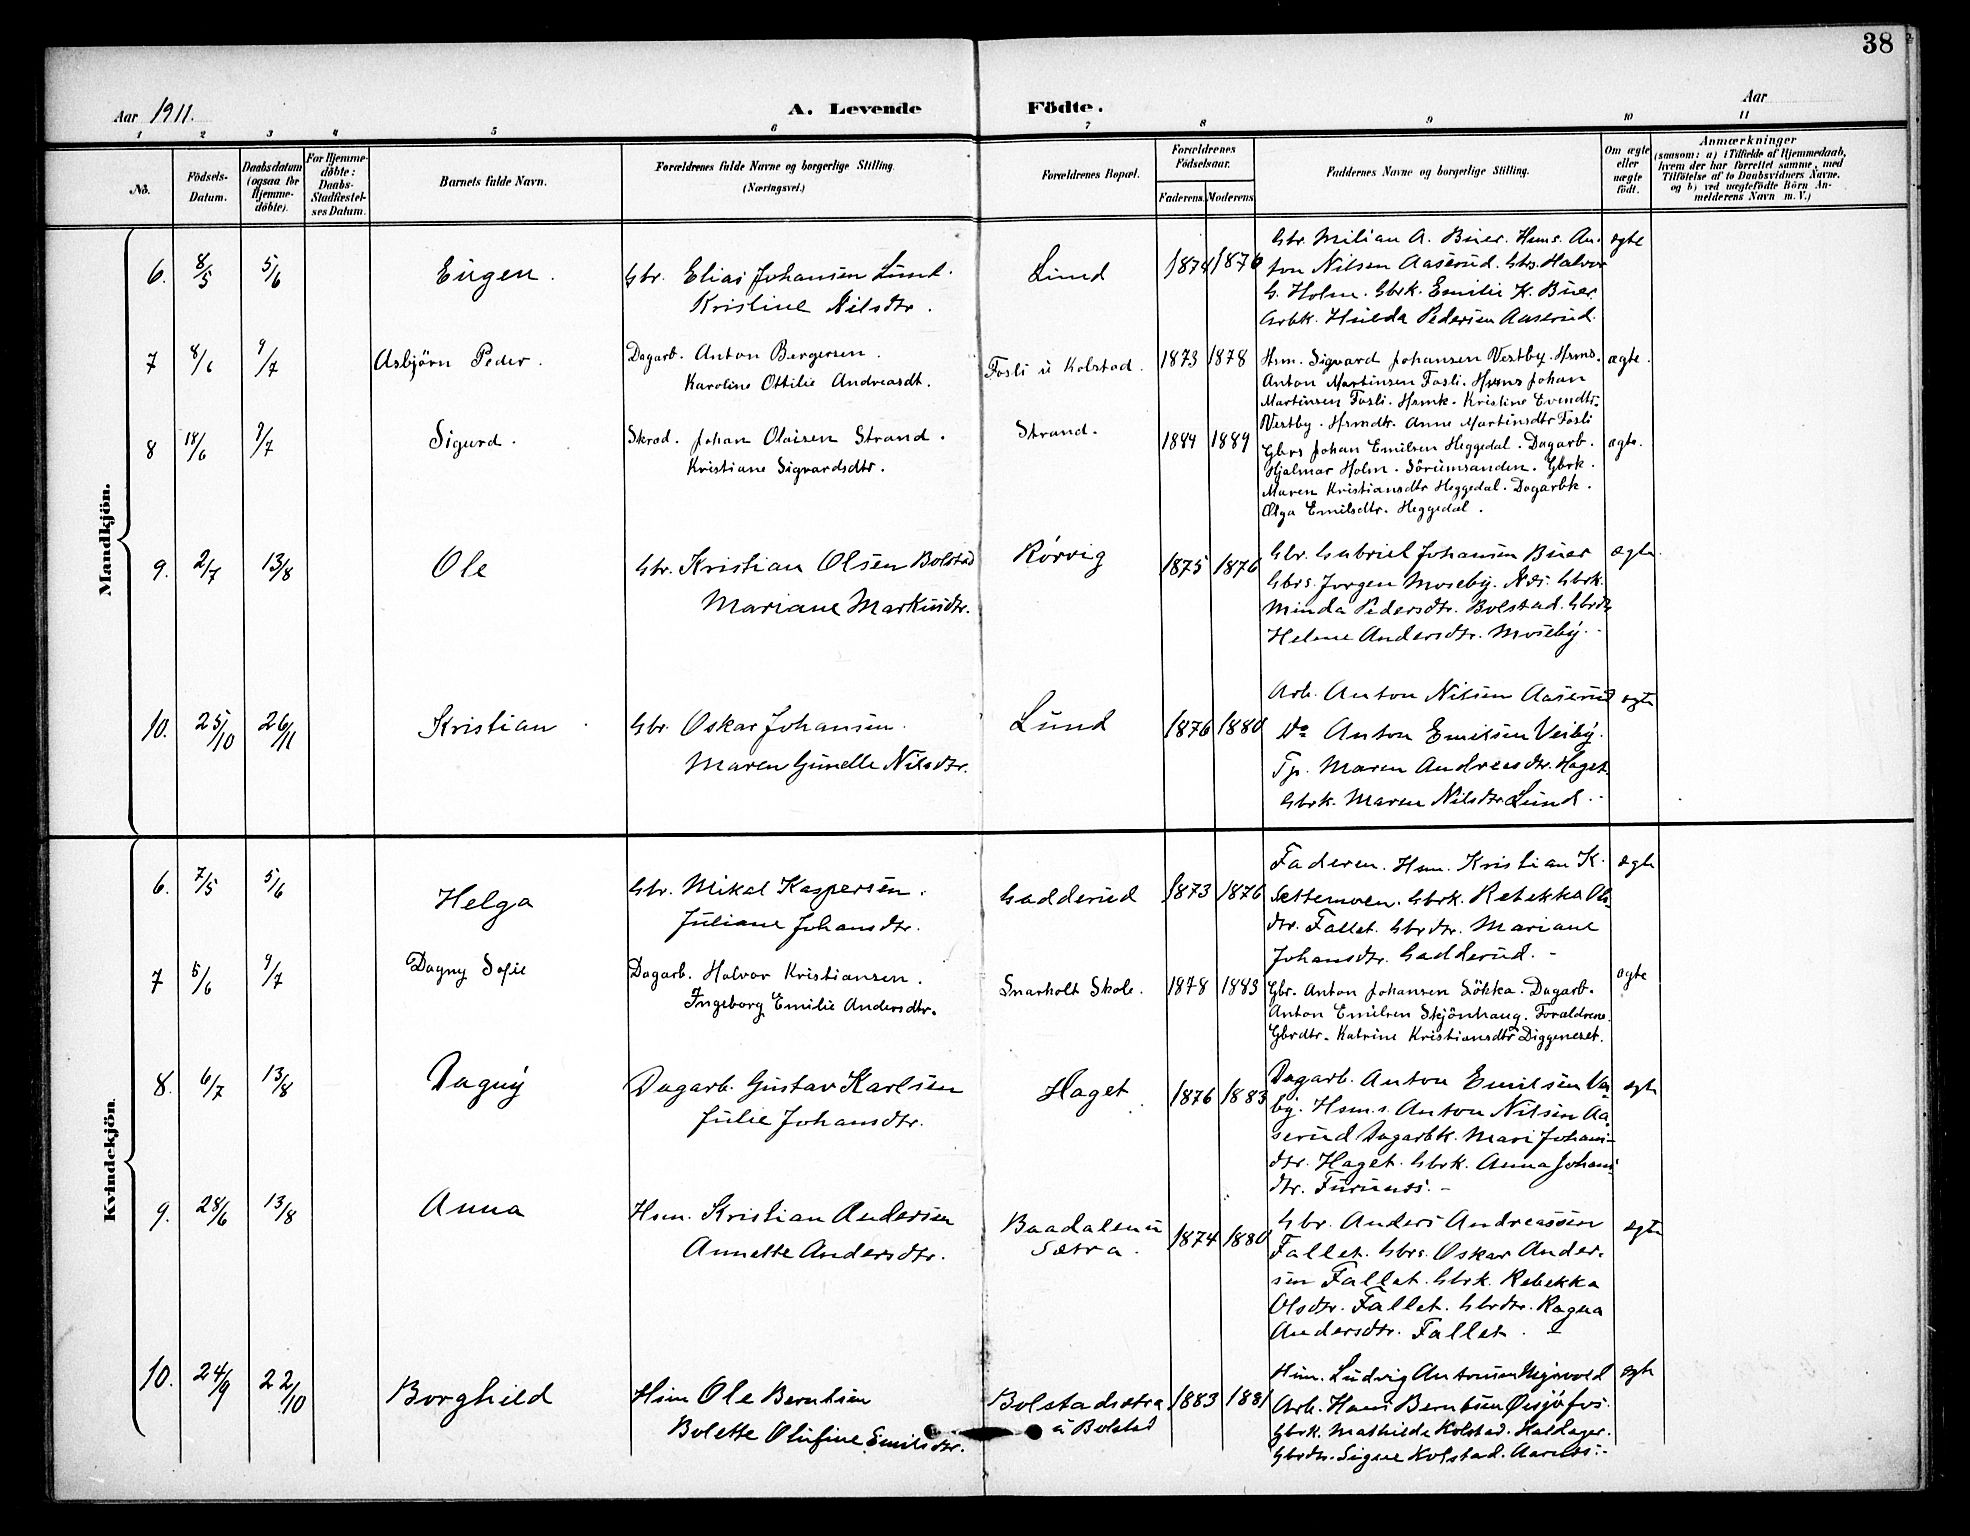 38
Aar 1911.
A. Levende Födte.
Aar
1 2 3 4 5 6 7 8 9 10 11
No.
Födsels-Datum.
Daabsdatum (ogsaa for Hjemme-döbte).
For Hjemme-döbte: Daabs-Stadfæstel-ses Datum.
Barnets fulde Navn.
Forældrenes fulde Navne og borgerlige Stilling. (Næringsvei.)
Forældrenes Bopæl.
Forældrenes Födselsaar.
Faderens. Moderens.
Faddernes Navne og borgerlige Stilling.
Om ægte eller uægte födt.
Anmærkninger
(saasom: a) i Tilfælde af Hjemmedaab,
hvem der har forrettet samme, med
Tilföielse af to Daabsvidners Navne,
og b) ved uægtefödte Börn An-
melderens Navn m. V.)
Mandkjön.
6. 8/5 5/6 Eugen. Gbr. Elias Johansen Lund. Lund 1874 1876 Gbr. Milian A. Buer. Hsms. An- ægte
Kristine Nilsdtr. ton Nilsen Aaserud. Gbs. Halvor
G. Holm. Gbrk. Emilie K. Buer
Arbk. Hulda Pedersen Aaserud.
7 8/6 9/7 Asbjörn Peder. Dagarb. Anton Bergersen. Fosli u Kolstad. 1873 1878 Hsm. Sigvard Johansen Vestby. Hsms. ægte.
Karoline Ottilie Andreasdt. Anton Martinsen Fosli. Hsms Johan
Martinsen Fosli. Hsmk. Kristine Evendts-
Vestby. Hsmdtr. Anne Martinsdtr Fosli
8 18/6 9/7 Sigurd. Skrad. Johan Olaisen Strand. Strand. 1884 1889 Gbrs Johan Emilsen Heggedal. Dagarb. ægte.
Kristiane Sigvardsdtr. Hjalmar Holm. Sörumsanden. Gbrk.
Maren Kristiansdtr Heggedal. Dagarbk.
Olga Emilsdtr. Heggedal.
9. 2/7 13/8 Ole Gbr. Kristian Olsen Bolstad Rørvig 1875 1876 Gbr. Gabriel Johansen Buer ægte.
Mariane Markusdtr. Gbrs. Jorgen Moseby. Gbrk.
Minda Pedersdtr. Bolstad. Gbrdtr
Helene Andersdtr. Moseby.
10. 25/10 26/11 Kristian Gbr. Oskar Johansen. Lund 1876 1880 Arb. Anton Nilsen Aaserud ægte
Maren Gunelle Nilsdtr. Do Anton Emilsen Veiby.
Tp. Maren Andreasdtr. Haget.
Gbrk. Maren Nilsdtr Lund.
Kvindekjön.
6. 7/5 5/6 Helga Gbr. Mikal Kaspersen. Gadderud 1873 1876 Faderen. Hsm. Kristian K. ægte
Juliane Johansdtr. Sættemoen. Gbrk. Rebekka Ols-
dtr. Fallet. Gbrdtr. Mariane
Johansdtr. Gadderud.
7 5/6 9/7 Dagny Sofie Dagarb. Halvor Kristiansen. Snarholt Skole. 1878 1883 Gbr. Anton Johansen Lökka. Dagarb. ægte
Ingeborg Emilie Andersdtr. Anton Emilsen Skjönhaug. Forældrene.
Gbrdtr. Katrine Kristiansdtr Diggeneset.
8. 6/7 13/8 Dagny Dagarb. Gustav Karlsen Haget 1876 1883 Dagarb. Anton Emilsen Vei- ægte
Julie Johansdtr. by. Hsms. Anton Nilsen Aa-
serud Dagarbk. Mari Johans-
dtr. Haget. Gbrk. Anna Johans-
dtr. Furunes.
9. 28/6 13/8 Anna Hsm. Kristian Andersen Baadalen u 1874 1880 Gbr. Anders Andreassen ægte
Annette Andersdtr. Sætra. Fallet. Gbrs. Oskar Ander-
sen Fallet. Gbrk. Rebekka
Olsdtr. Fallet. Gbrdtr. Ragna
Andersdtr. Fallet.
10. 24/9 22/10 Borghild Hsm Ole Berntsen Bolstadsætra 1883 1881 Hsm. Ludvig Antonsen ægte
Bolette Olufine Emilsdtr. u Bolstad Arb. Hans Berntsen Øisjöfos.
Gbrk. Mathilde Kolstad. Haldager.
Gbrdtr. Signe Kolstad. Aarnes.